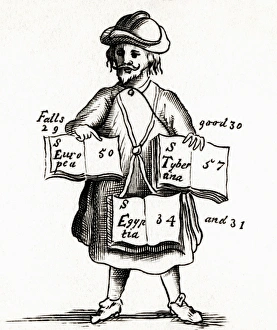 Falls
29
good 30
S
Euro
pea
50
S
Tyber
tina
57
S
Egyp
tia
34
and 31